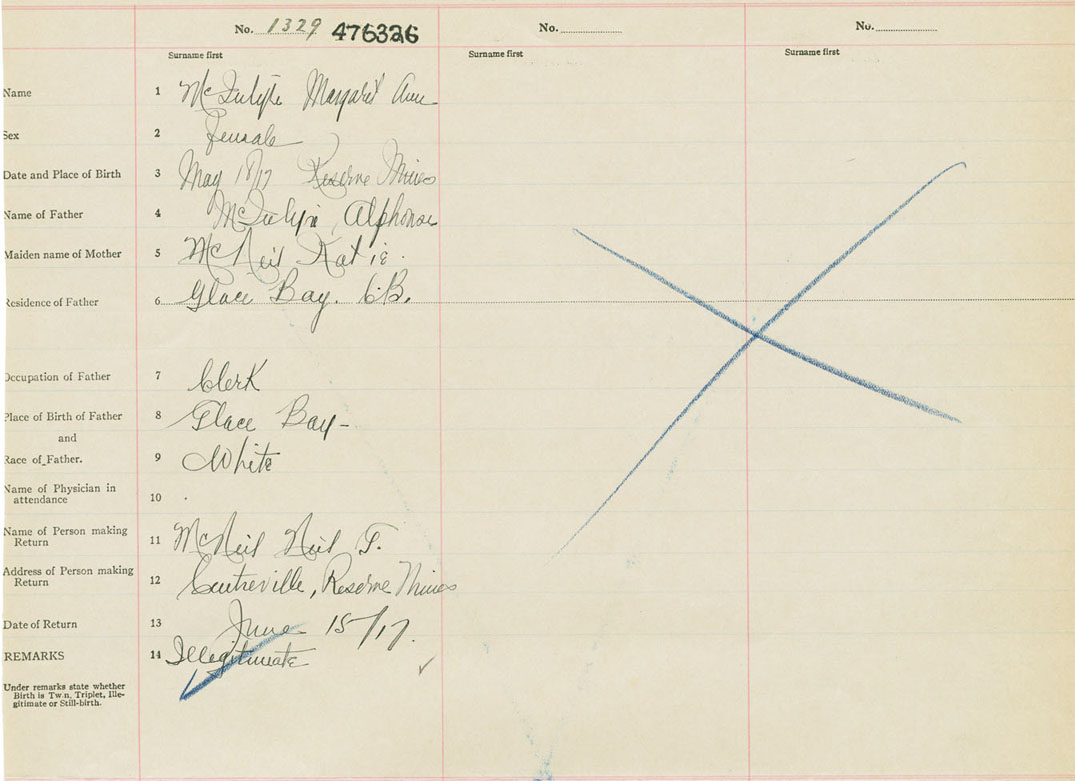 No. 1329 476326 No. No.
Surname first Surname first Surname first
Name 1 McIntyre Margaret Ann
Sex 2 Female
Date and Place of Birth 3 May 18/17 Reserve Mines
Name of Father 4 McIntyre, Alphonse
Maiden name of Mother 5 McNeil Katie.
Residence of Father 6 Glace Bay. C.B.
Occupation of Father 7 Clerk
Place of Birth of Father 8 Glace Bay-
and
Race of Father. 9 White
Name of Physician in
attendance 10
Name of Person making
Return 11 McNeil Neil F.
Address of Person making
Return 12 Centreville, Reserve Mines
Date of Return 13 June 15/17.
REMARKS 14 Illegitimate ✓
Under remarks state whether
Birth is Twin, Triplet, Ille-
gitimate or Still-birth.